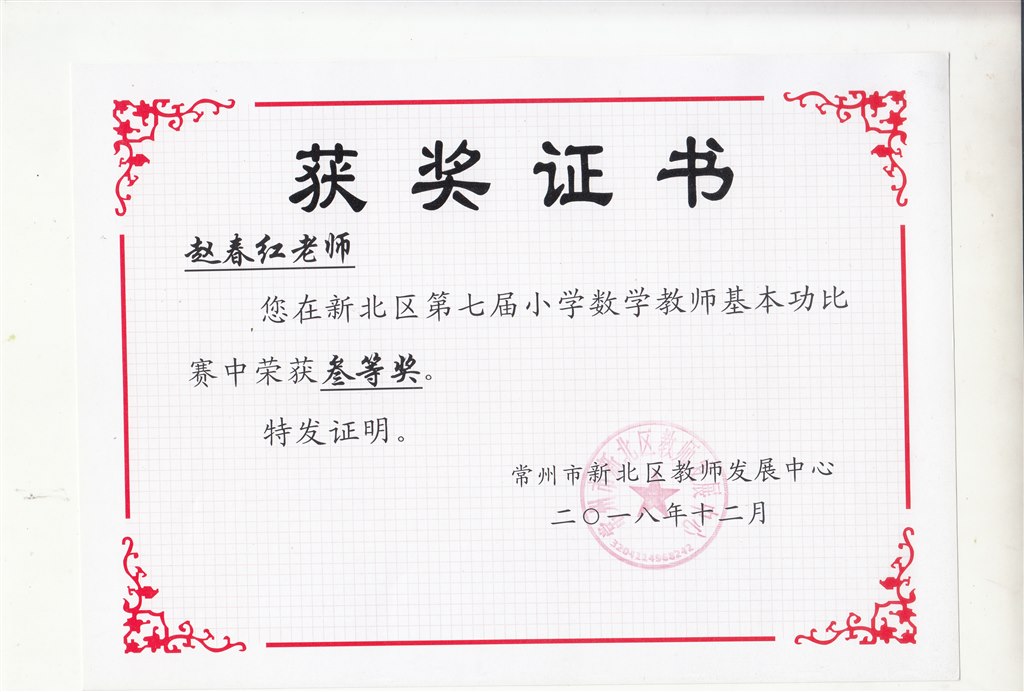 获奖证书
赵春红老师
您在新北区第七届小学数学教师基本功比
赛中荣获叁等奖。
特发证明。
常州市新北区教师发展中心
二〇一八年十二月
常州市新北区教师发展中心